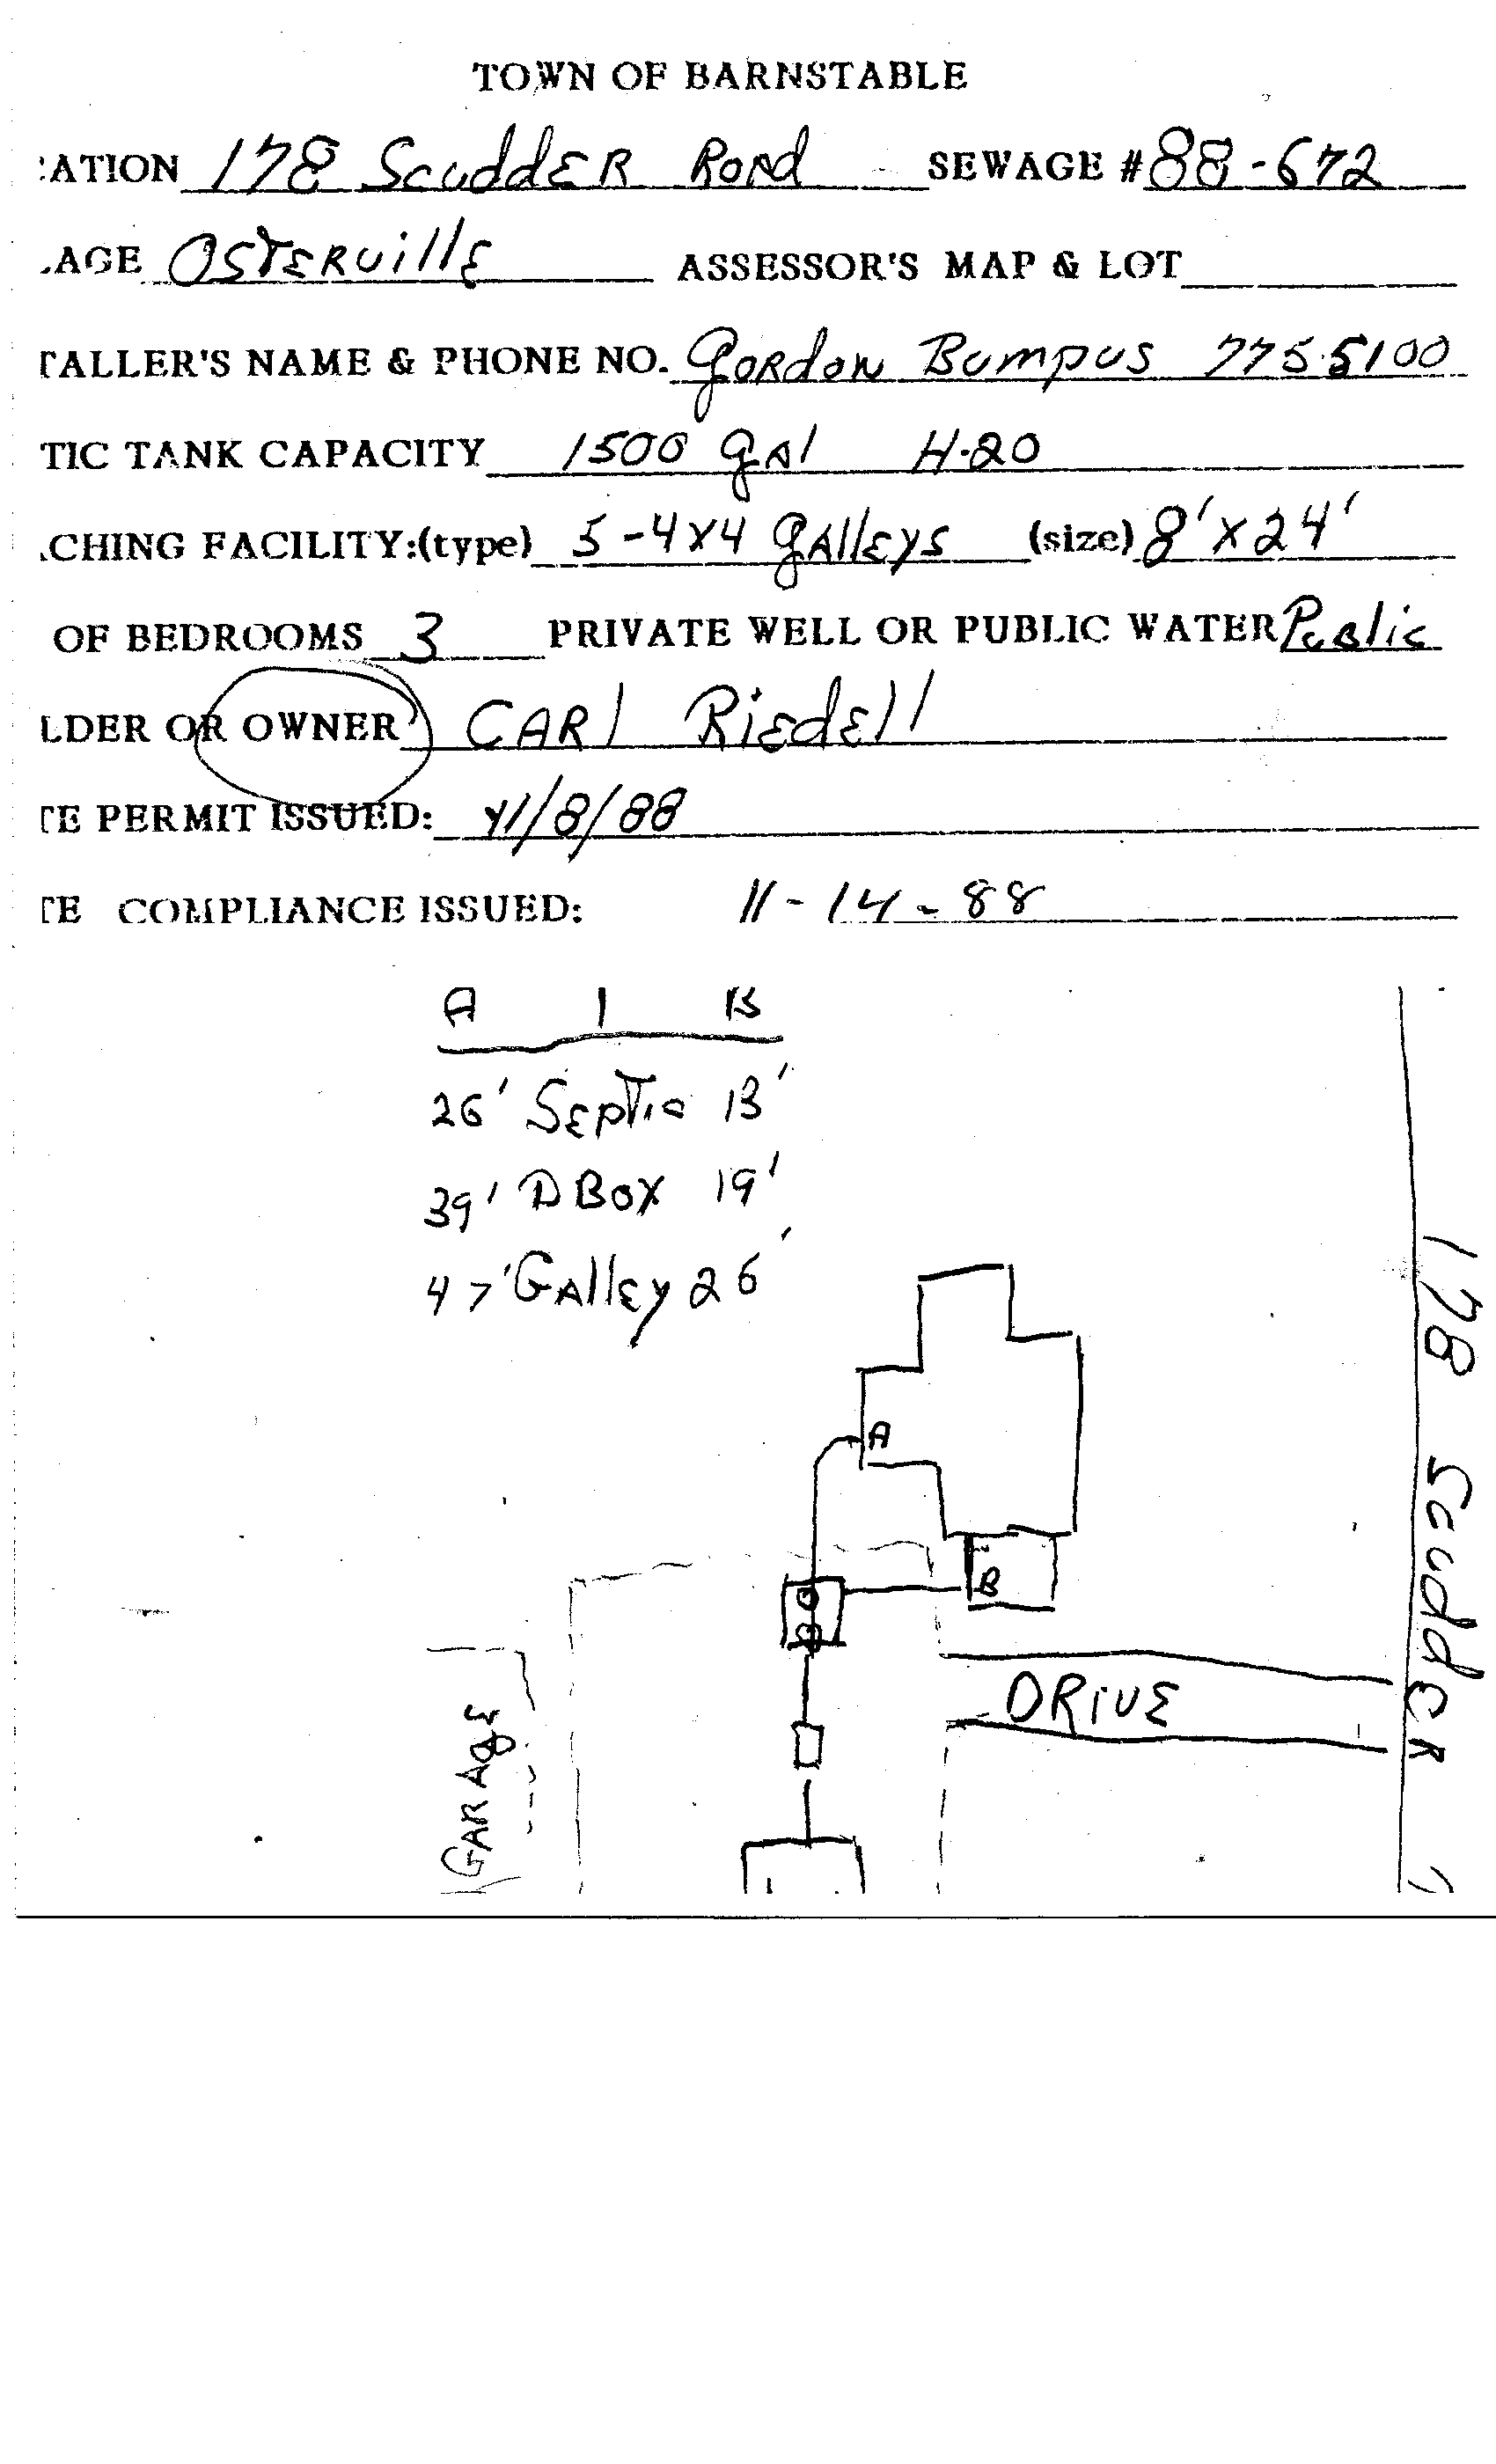 TOWN OF BARNSTABLE
CATION 178 ScuddER Road SEWAGE # 88-672
LAGE OSTERVillE ASSESSOR'S MAP & LOT
TALLER'S NAME & PHONE NO. Gordon Bumpus 775-5100
TIC TANK CAPACITY 1500 gAl H-20
ACHING FACILITY:(type) 5-4x4 gAllEys (size) 8'x24'
OF BEDROOMS 3 PRIVATE WELL OR PUBLIC WATER Public
LDER OR OWNER CARl RiEdEll
TE PERMIT ISSUED: 11/8/88
TE COMPLIANCE ISSUED: 11-14-88
A | B
26' SEpTic 13'
39' D Box 19'
47' GAllEy 26'
A
B
DRIVE
GARAgE
178 ScuddER